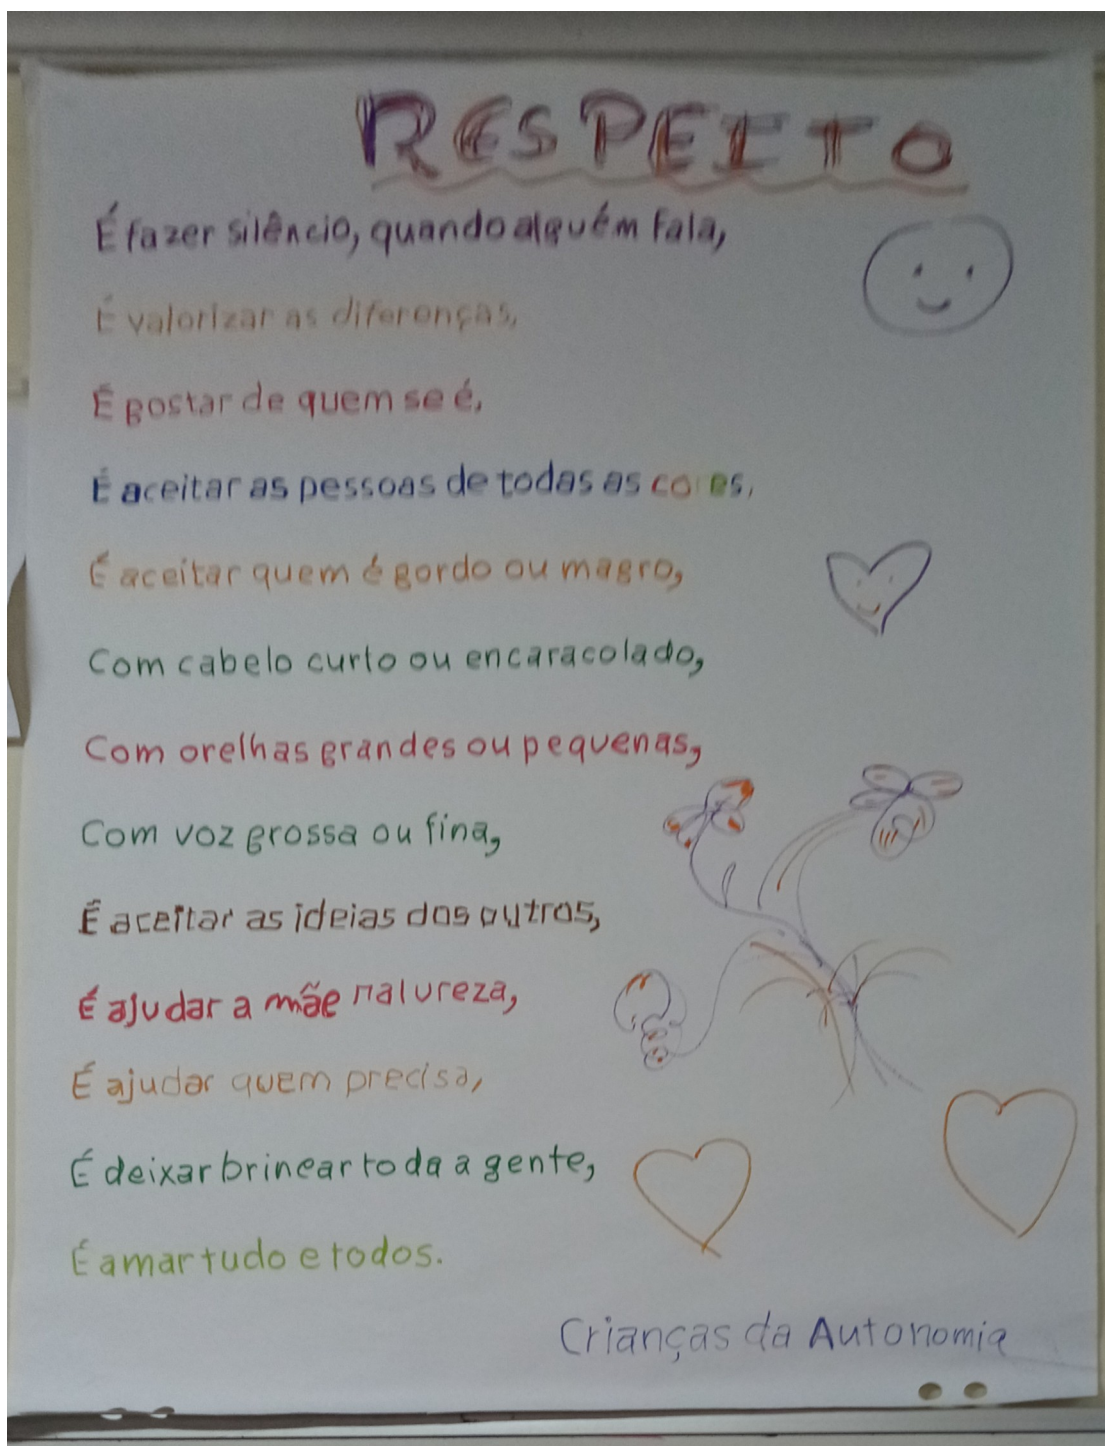 RESPEITO
É fazer silêncio, quando alguém fala,
É valorizar as diferenças,
É gostar de quem se é,
É aceitar as pessoas de todas as cores,
É aceitar quem é gordo ou magro,
Com cabelo curto ou encaracolado,
Com orelhas grandes ou pequenas,
Com voz grossa ou fina,
É aceitar as ideias dos outros,
É ajudar a mãe natureza,
É ajudar quem precisa,
É deixar brincar toda a gente,
É amar tudo e todos.
Crianças da Autonomia